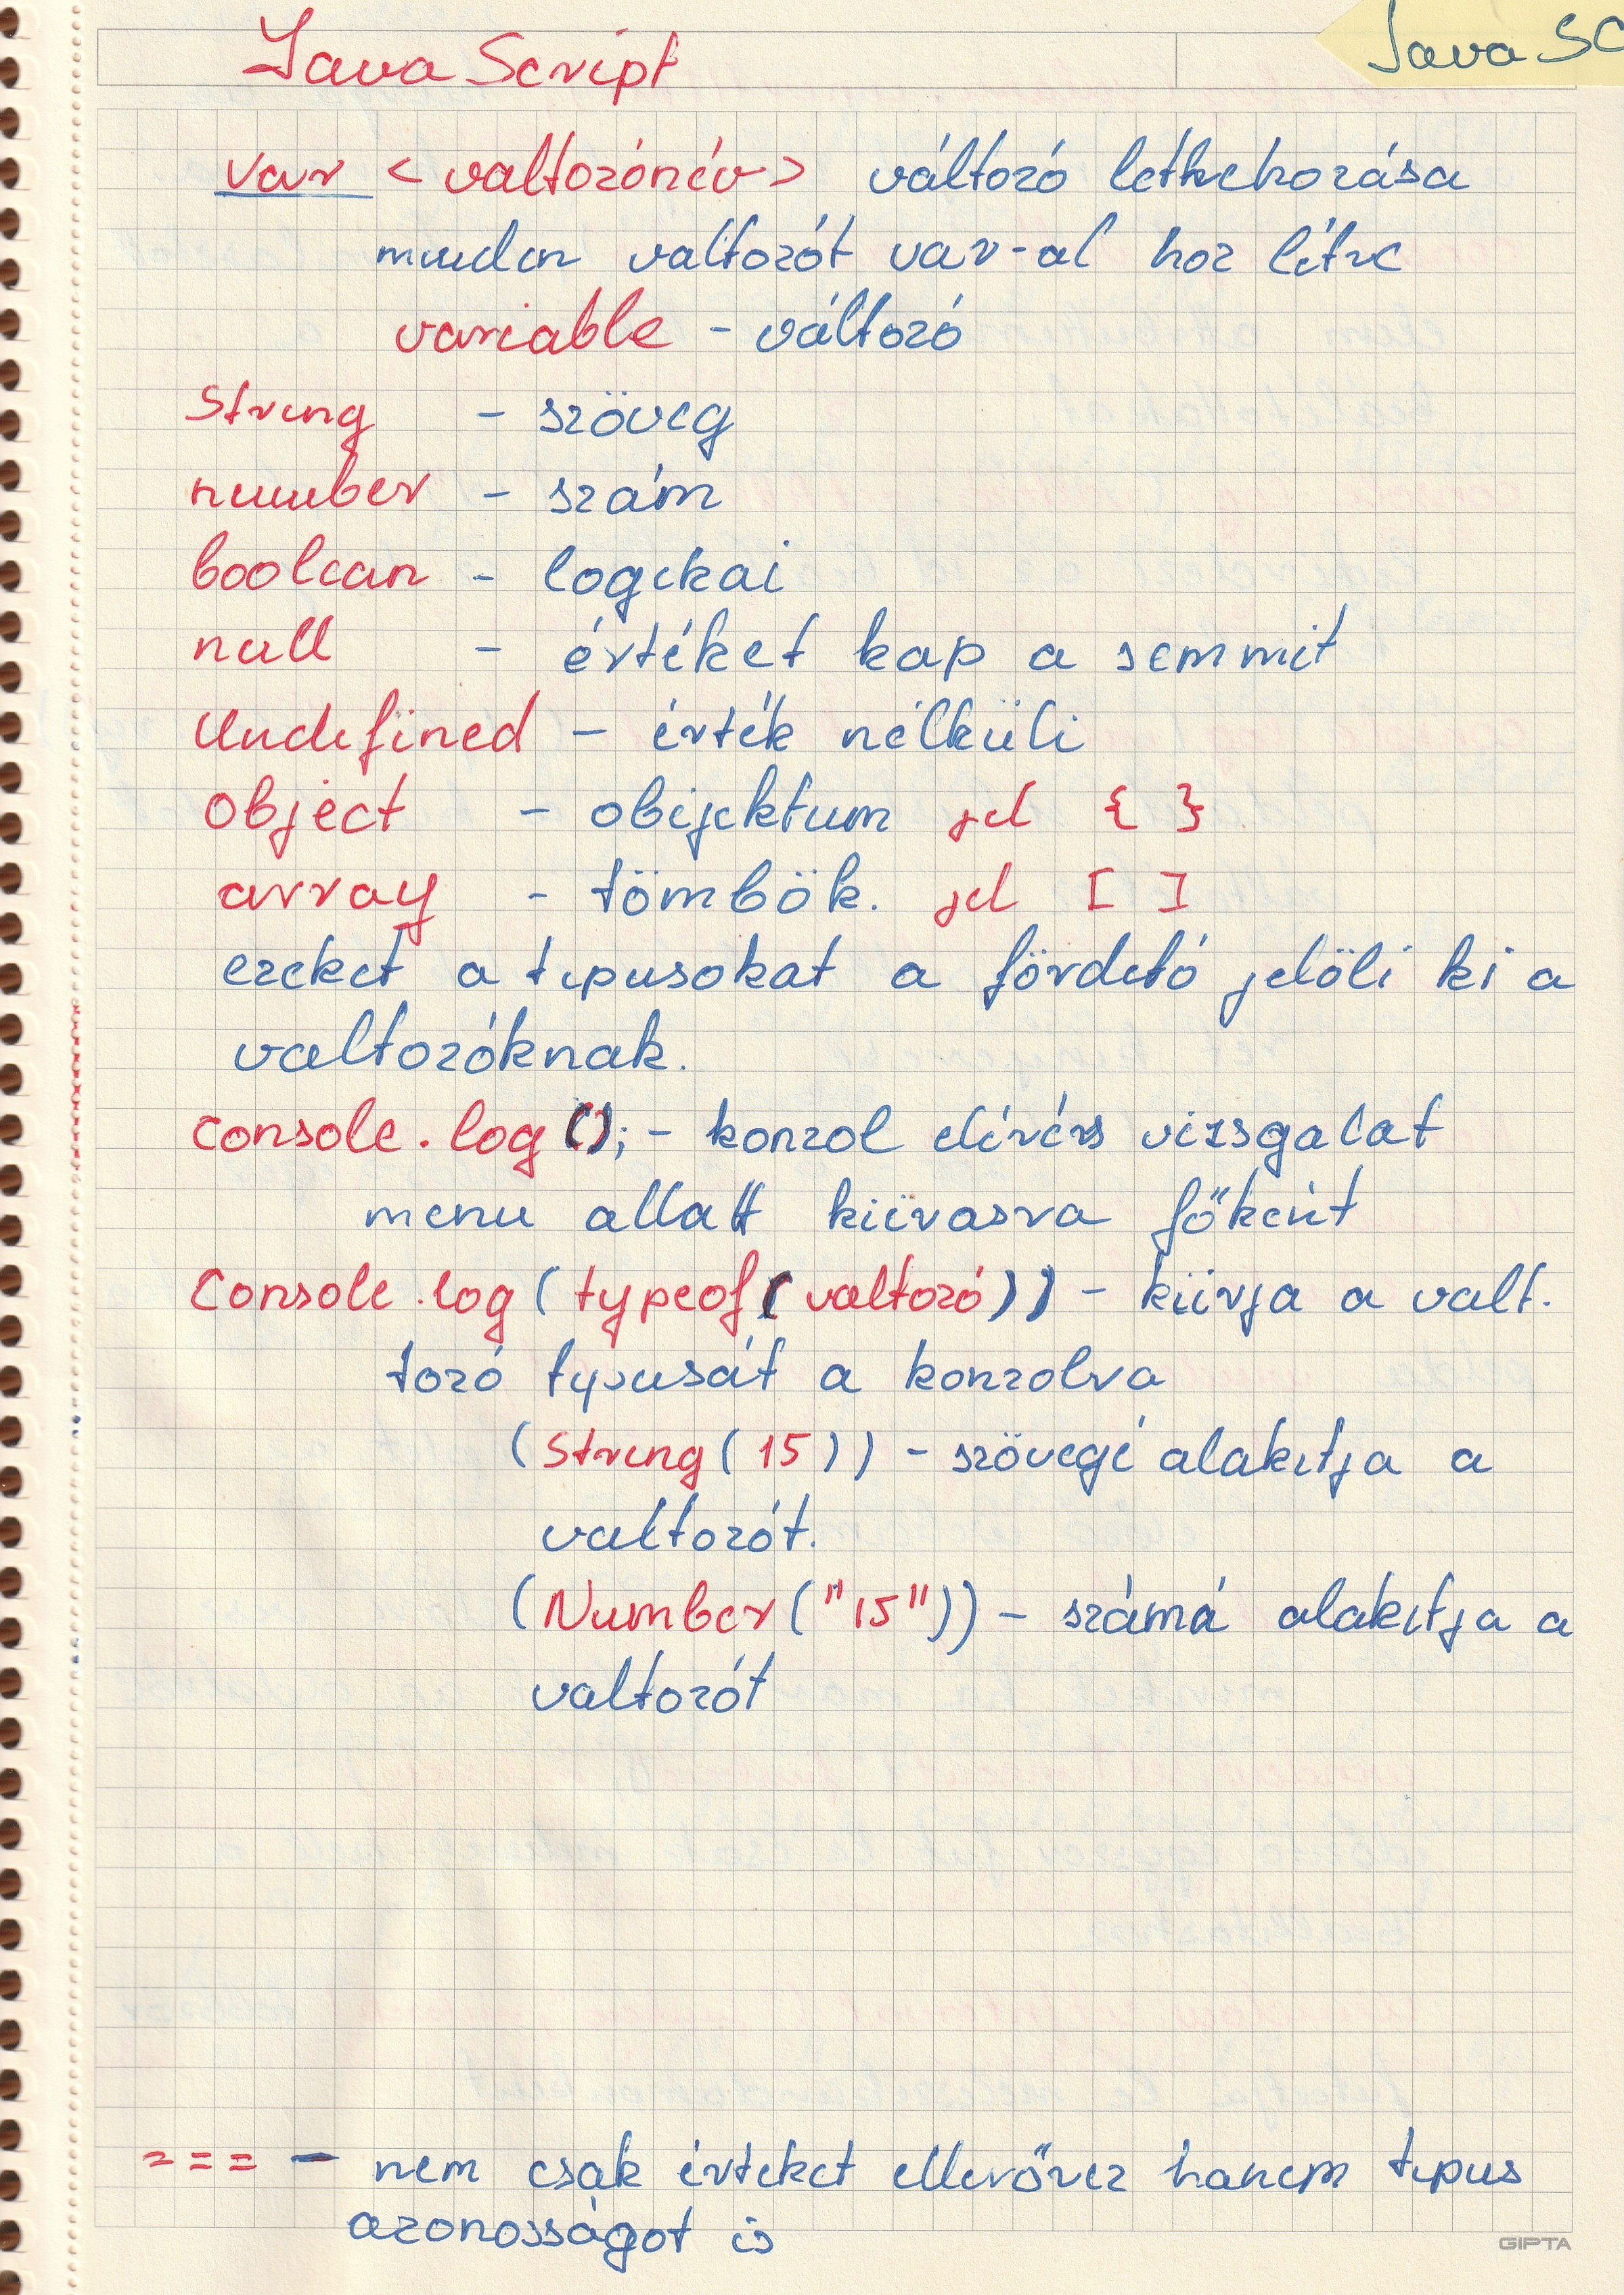 Java Script
Java SC
var <valtozónév> változó letrehozása
minden valtozót var-al hoz létre
variable - változó
String - szöveg
number - szám
boolean - logikai
null - értéket kap a semmit
Undefined - érték nélküli
Object - objektum jel { }
array - tömbök. jel [ ]
ezeket a tipusokat a fördító jelöli ki a
valtozóknak.
console.log(); - konzol elérés vizsgalat
menu allatt kiírasra főként
Console.log(typeof(valtozó)) - kiírja a valt.
tozó typusát a konzolra
(String(15)) - szövegé alakitja a
valtozót.
(Number("15")) - számá alakitja a
valtozót
=== - nem csak érteket ellenőrez hanem tipus
azonosságot is
GIPTA